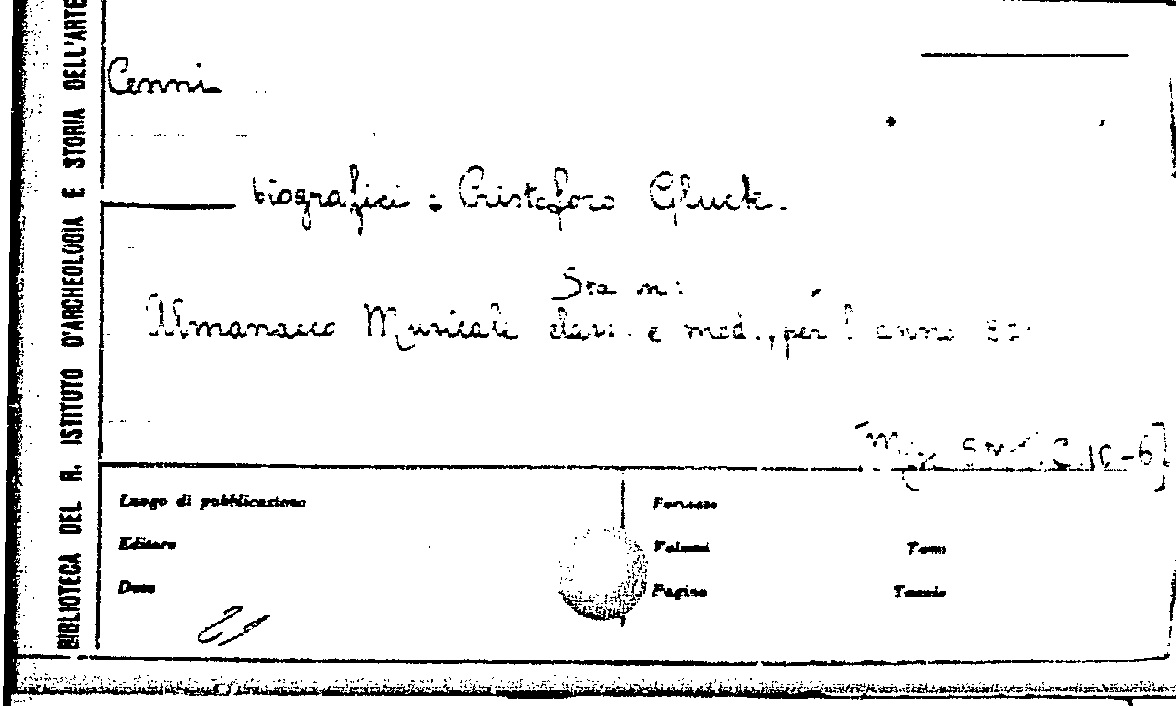 BIBLIOTECA DEL R. ISTITUTO D'ARCHEOLOGIA E STORIA DELL'ARTE
Cenni
biografici: Cristoforo Gluck.
Sta in:
Almanacco Musicale class. e mod., per l'anno
Luogo di pubblicazione
Editore
Data
Formato
Volumi
Tomi
Pagine
Tavole